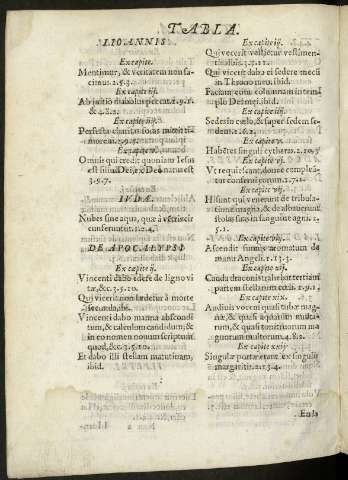 TABLA.
I. IOANNIS.
Ex capite.
Mentimur, & veritatem non fa-
cimus. 2.5.3.
Ex capite iij.
Ab initio diabolus peccat. 1.9.1.
& 4.8.2.
Ex capite iiij.
Perfecta charitas foras mittit ti-
morem.
Ex capite v.
Omnis qui credit quoniam Iesus
est filius Dei, ex Deo natus est
3.5.7.
IVDA.
Nubes sine aqua, quæ à ventis cir
conferuntur. 1.2.4.
DE APOCALYPSI
Ex capite ij.
Vincenti dabo edere de ligno vi
tæ, &c. 3.5.10.
Qui vicerit non lædetur à morte
secunda, ibi.
Vincenti dabo manna abscondi
tum, & calculum candidum; &
in eo nomen novum scriptum
quod, &c. 3.5.10.
Et dabo illi stellam matutinam,
ibid.
Ex capite iij.
Qui vicerit vestietur vestimen-
tis albis. 3.5.11.
Qui vicerit dabo ei sedere mecū
in Throno meo. ibid.
Faciam eum columnam in tem-
plo Dei mei. ibid.
Ex capite iiij.
Sedes in cœlo, & super sedem se-
dens. 1.6.2.
Ex capite v.
Habētes singuli cytharas. 2.10.5
Ex capite vj.
Vt requiescant, donec compleā-
tur conservi eorum. 2.7.1.
Ex capite vij.
Hi sunt qui venerunt de tribula-
tione magna, & dealbaverunt
stolas suas in sanguine agni. 2.
5.1.
Ex capite viij.
Ascendit fumus aromatum de
manu Angeli. 1.13.3.
Ex capite xij.
Cauda draconis trahebat tertiam
partem stellarum cœli. 1.9.1.
Ex capite xix.
Audivi vocem quasi tubæ mag-
næ, & quasi aquarum multa-
rum, & quasi tonitruorum ma
gnorum multorum. 4.8.2.
Ex capite xxij.
Singulæ portæ erant ex singulis
margaritis. 2.13.4.
En la